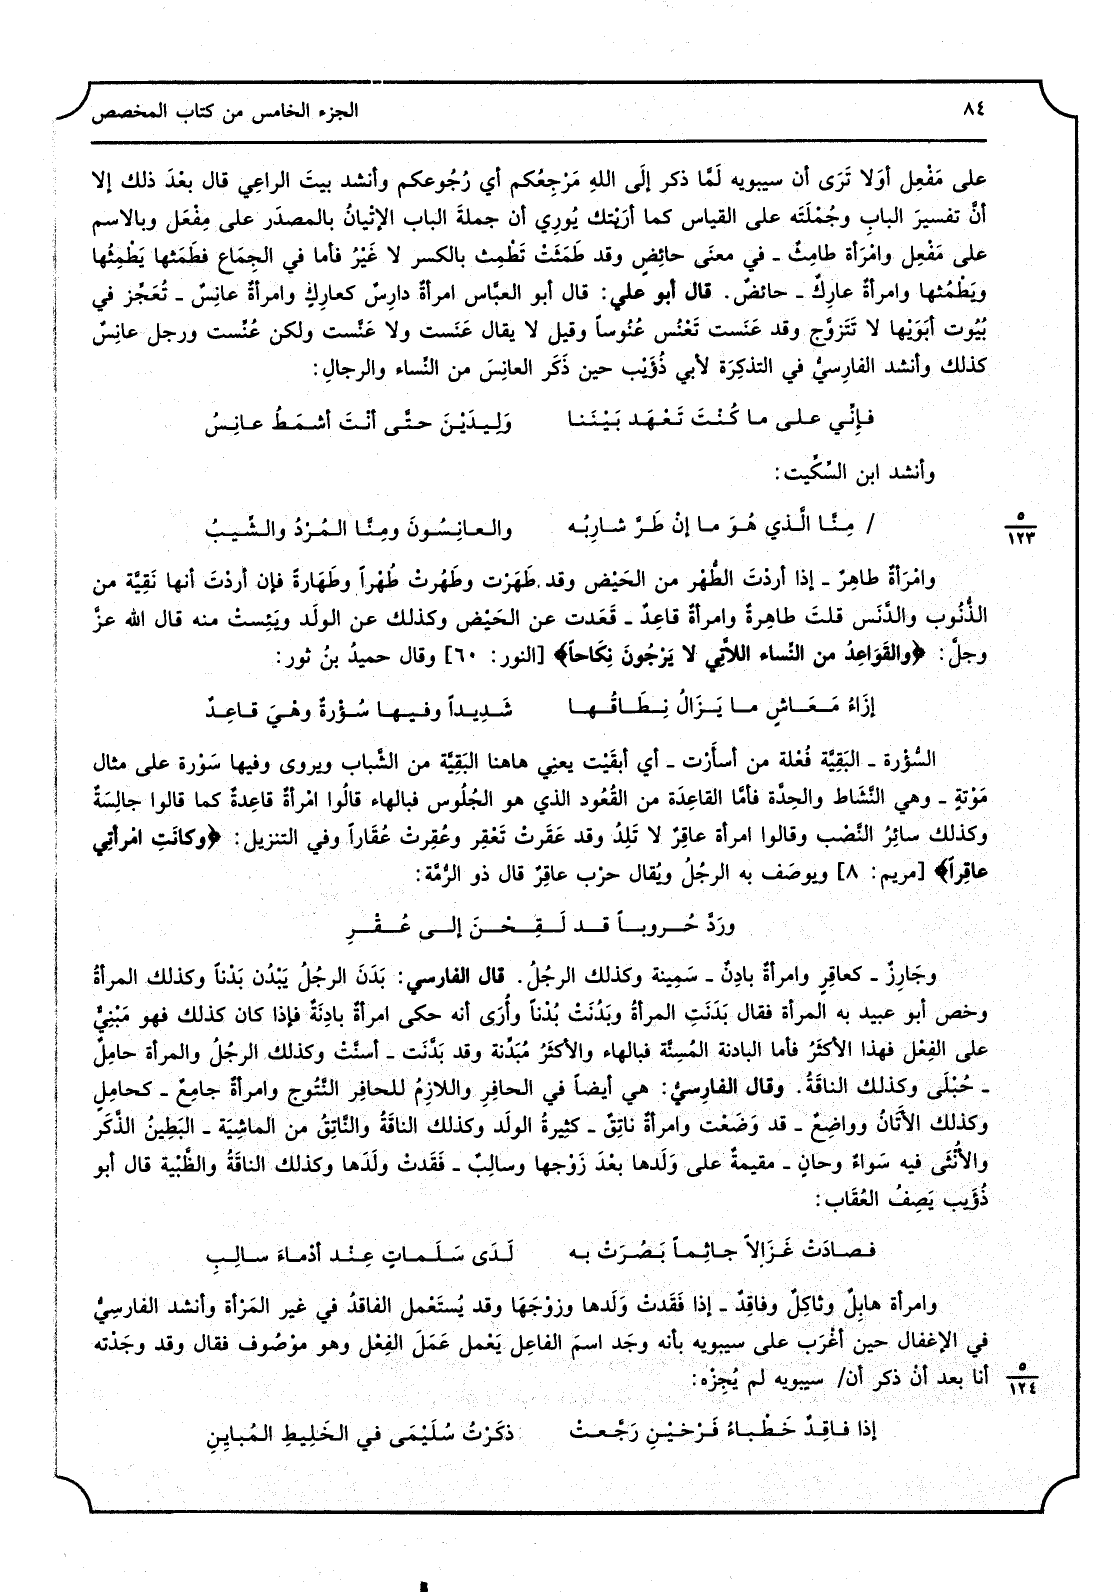 ٨٤ الجزء الخامس من كتاب المخصص
على مَفْعِل أوَلا تَرَى أن سيبويه لَمَّا ذكر إلَى اللهِ مَرْجِعُكم أي رُجُوعكم وأنشد بيتَ الراعِي قال بعْدَ ذلك إلا
أنَّ تفسيرَ البابِ وجُمْلَتَه على القياس كما أرَيْتك يُورِي أن جملةَ الباب الإتْيانُ بالمصدَر على مِفْعَل وبالاسم
على مَفْعِل وامْرَأة طامِثٌ ـ في معنَى حائِضٍ وقد طَمَثَتْ تَطْمِث بالكسر لا غَيْرُ فأما في الجِمَاع فطَمَثها يَطْمِثُها
ويَطْمُثها وامرأةٌ عارِكٌ ـ حائضٌ. قال أبو علي: قال أبو العبَّاس امرأةٌ دارِسٌ كعارِكٍ وامرأةٌ عانِسٌ ـ تُعَجَّز في
بُيُوت أبَوَيْها لا تَتَزوَّج وقد عَنَست تَعْنُس عُنُوساً وقيل لا يقال عَنَست ولا عَنَّست ولكن عُنِّست ورجل عانِسٌ
كذلك وأنشد الفارِسيُّ في التذكِرَة لأبي ذُؤَيْب حين ذَكَر العانِسَ من النِّساء والرجالِ:
فـإنِّـي عـلـى مـا كُـنْـتَ تَـعْـهَـد بَـيْـنَـنـا وَلِـيـدَيْـنِ حـتَّـى أنْـتَ أشـمَـطُ عـانِـسُ
وأنشد ابن السِّكِّيت:
/ مِـنَّـا الَّـذي هُـوَ مـا إنْ طَـرَّ شـارِبُـه والـعـانِـسُـونَ ومِـنَّـا الـمُـرْدُ والـشِّـيـبُ
٥
١٢٣
وامْرَأةٌ طاهِرٌ ـ إذا أردْتَ الطُّهْر من الحَيْض وقد طَهَرْت وطَهُرتْ طُهْراً وطَهَارةً فإن أردْتَ أنها نَقِيَّة من
الذُّنُوب والدَّنَس قلتَ طاهِرةٌ وامرأةٌ قاعِدٌ ـ قَعَدت عن الحَيْض وكذلك عن الولَد ويَئِستْ منه قال الله عزَّ
وجلَّ: ﴿والقَوَاعِدُ من النِّساء اللاَّتِي لا يَرْجُونَ نِكَاحاً﴾ [النور: ٦٠] وقال حميدُ بنُ ثور:
إزَاءُ مَـعَـاشٍ مـا يَـزَالُ نِـطَـاقُـهـا شَـدِيـداً وفـيـهـا سُـؤْرةٌ وهْـيَ قـاعِـدٌ
السُّؤْرة ـ البَقِيَّة فُعْلة من أسأَرْت ـ أي أبقَيْت يعنِي هاهنا البَقِيَّة من الشَّباب ويروى وفيها سَوْرة على مثال
مَوْتةٍ ـ وهي النَّشَاط والحِدَّة فأمَّا القاعِدَة من القُعُود الذي هو الجُلُوس فبالهاء قالُوا امْرأةٌ قاعِدةٌ كما قالوا جالِسَةٌ
وكذلك سائِرُ النَّصْب وقالوا امرأة عاقِرٌ لا تَلِدُ وقد عَقَرتْ تَعْقِر وعُقِرتْ عُقَاراً وفي التنزيل: ﴿وكانَتِ امْرأتِي
عاقِراً﴾ [مريم: ٨] ويوصَف به الرجُلُ ويُقال حرْب عاقِرٌ قال ذو الرُّمَّة:
ورَدَّ حُــروبــاً قــد لَــقِــحْــنَ إلــى عُــقْــرِ
وجَارِزٌ ـ كعاقِرٍ وامرأةٌ بادِنٌ ـ سَمِينة وكذلك الرجلُ. قال الفارسي: بَدَنَ الرجُلُ يَبْدُن بَدْناً وكذلك المرأةُ
وخص أبو عبيد به المرأة فقال بَدَنَتِ المرأةُ وبَدُنَتْ بُدْناً وأُرَى أنه حكى امرأةٌ بادِنَةٌ فإذا كان كذلك فهو مَبْنِيٌّ
على الفِعْل فهذا الأكثَرُ فأما البادنة المُسِنَّة فبالهاء والأكثَرُ مُبَدِّنة وقد بَدَّنَت ـ أسنَّتْ وكذلك الرجُلُ والمرأة حامِلٌ
ـ حُبْلَى وكذلك الناقَةُ. وقال الفارِسيُّ: هي أيضاً في الحافِرِ واللازِمُ للحافِر النَّتُوج وامرأةٌ جامِعٌ ـ كحامِلٍ
وكذلك الأَتَانُ وواضِعٌ ـ قد وَضَعْت وامرأةٌ ناتِقٌ ـ كثِيرةُ الولَد وكذلك الناقَةُ والنَّاتِقُ من الماشِيَة ـ البَطِينُ الذَّكَر
والأُنْثَى فيه سَواءٌ وحانٍ ـ مقيمةٌ على وَلَدها بعْدَ زَوْجها وسالِبٌ ـ فَقَدتْ ولَدَها وكذلك الناقَةُ والظَّبْية قال أبو
ذُؤَيب يَصِفُ العُقَاب:
فـصـادَتْ غَـزَالاً جـاثِـمـاً بَـصُـرَتْ بـه لَـدَى سَـلَـمـاتٍ عِـنْـد أدْمـاءَ سـالِـبِ
وامرأة هابِلٌ وثاكِلٌ وفاقِدٌ ـ إذا فَقَدتْ وَلَدها وزوْجَهَا وقد يُستَعْمل الفاقدُ في غير المَرْأة وأنشد الفارسِيُّ
في الإغفال حين أغْرَب على سيبويه بأنه وجَد اسمَ الفاعِل يَعْمل عَمَلَ الفِعْل وهو موْصُوف فقال وقد وجَدْته
أنا بعد أنْ ذكر أن/ سيبويه لم يُجِزْه:
٥
١٢٤
إذا فـاقِـدٌ خَـطْـبـاءُ فَـرْخَـيْـنِ رَجَّـعـتْ ذكَـرْتُ سُـلَـيْـمَـى فـي الـخَـلِـيـطِ الـمُـبـايِـنِ